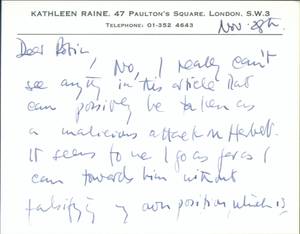 KATHLEEN RAINE, 47 PAULTON'S SQUARE, LONDON, S.W.3
TELEPHONE: 01-352 4643
Nov. 28th
Dear Robin
No, I really can't
see anything in this article that
can possibly be taken as
a malicious attack on Herbert.
It seems to me I go as far as I
can towards him without
falsifying my own position which is